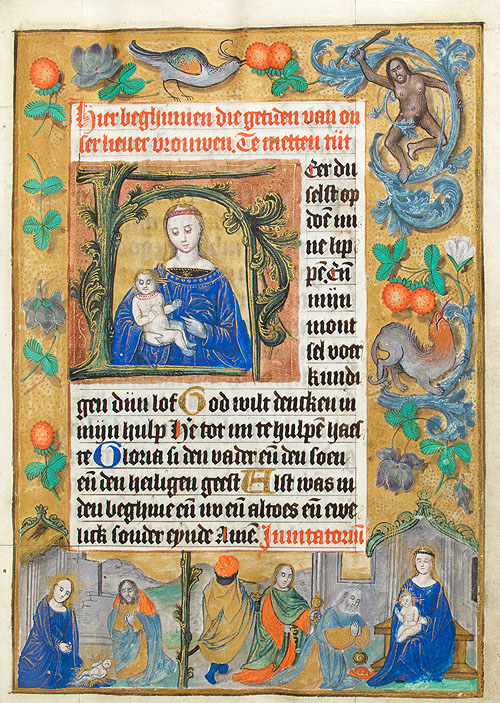 Hier beghinnen die getiden van on
ser lieuer vrouwen. Te metten tijt
HEer du
selst op
doē mi
ne lip
pē En̄
mijn
mont
sel voer
kundi
gen dijn lof God wilt dencken in
mijn hulp He tot mi te hulpē haes
te Gloria si den vader en̄ den soen
en̄ den heiligen geest Alst was in
den beghīne en̄ nv en̄ altoes en̄ ewe
lick sonder eynde Amē. Inuitatoriū